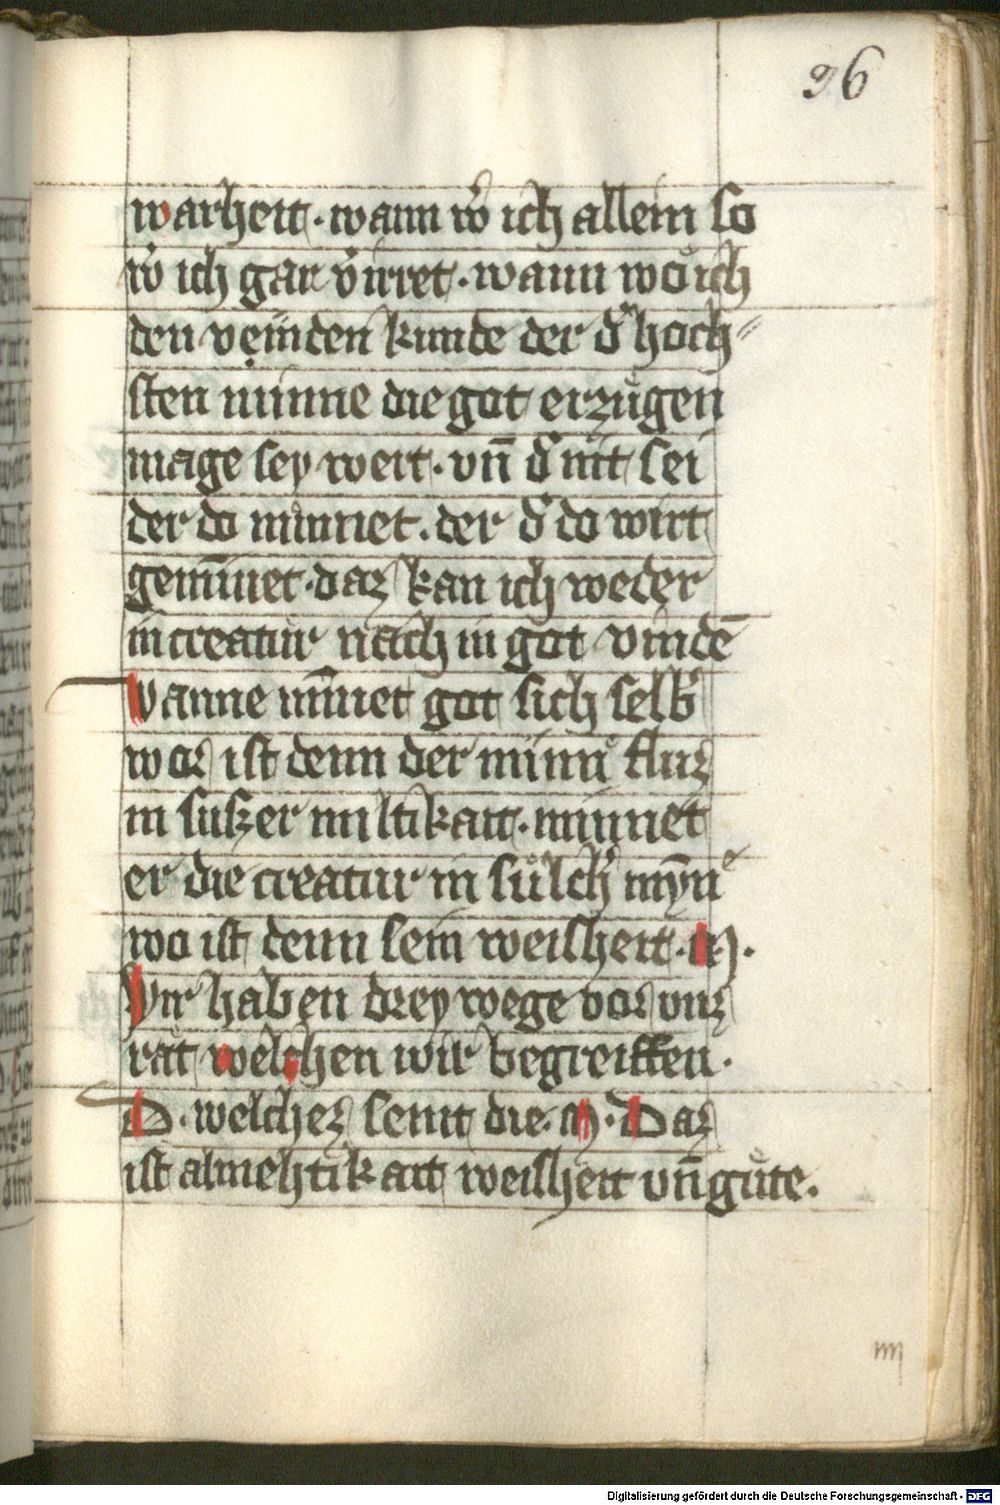 36
warheit · wann w̉ ich allein so
w̉ ich gar v̉irret · wann wo ich
den veinden kunde der d̉ hoch=
sten minne die got erzůgen
mage sey wert · vn̄ d̉ mit sei
der do minnet . der d̉ do wirt
gemīnet · daz kan ich weder
in creatur nach in got vindē
wanne mīnet got sich selb̉
wor ist denn der minn̉ fluz
in suszer miltikait · minnet
er die creatur in sůlch̉ myn̄e
wo ist denn sein weisheit · M ·
Wir haben drey wege vor vnz
rat welchen wir begreiffen ·
D · welcher seint die · M · Daz
ist almehtikait weisheit vn̄ gůte .
iiij
Digitalisierung gefördert durch die Deutsche Forschungsgemeinschaft - DFG